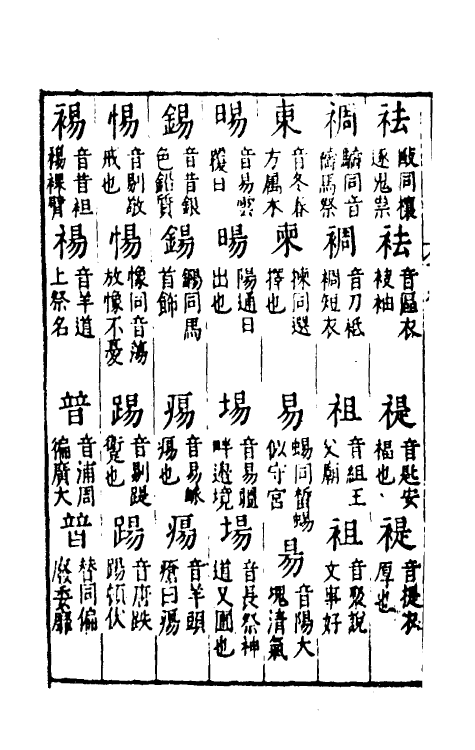 祛
敺同攘
逐鬼祟
袪
音區衣
袂袖
禔
音匙安
福也
褆
音提衣
厚也
禂
禱馬祭
裯
音刀袛
裯短衣
祖
音組王
父廟
袓
音聚說
文事好
東
音冬春
方屬木
柬
揀同選
擇也
易
蜴同蜥蜴
似守宮
昜
音陽大
塊清氣
晹
音易雲
覆日
暘
陽通日
出也
埸
音易疆
畔邊境
場
音長祭神
道又圃也
錫
音昔銀
色鉛質
鍚
鐊同馬
首飾
痬
音易脈
痬也
瘍
音羊頭
瘡曰瘍
惕
音剔敬
戒也
愓
像同音蕩
放像不憂
踢
音剔踶
蹵也
踼
音唐跌
踼頓伏
裼
音昔袒
裼裸臂
禓
音羊道
上祭名
普
音浦周
徧廣大
暜
替同偏
廢委靡